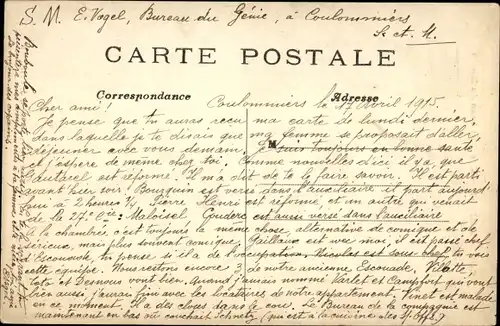 S. M. E. Vogel, Bureau du Génie, à Coulommiers
S. et M.
CARTE POSTALE
Correspondance
Adresse
Coulommiers le 17 Avril 1915.
Cher ami!
Je pense que tu auras reçu ma carte de lundi dernier,
dans laquelle je te disais que ma femme se proposait d'aller
déjeuner avec vous demain. Je suis toujours en bonne santé
et j'espère de même chez toi. Comme nouvelles d'ici il y a que
est réformé. Il m'a dit de te le faire savoir. Il est parti
avant hier soir. Bourquin est versé dans l'auxiliaire il part aujourd'
hui à 2 heures ½, Pierre Henri est réformé, et un autre qui venait
de la 27e Cie: Maloisel. Gouderc est aussi versé dans l'auxiliaire
A la chambrée c'est toujours la même chose, alternative de comique et de
sérieux, mais plus souvent comique. Gaillaux est avec moi, il est passé chef
d'Escouade, tu penses si il a de l'occupation, Nicolas est sous-chef, tu vois
cette équipe. Nous restons encore 3 de notre ancienne Escouade, Vilotte,
Toto et Desnous vont bien. Quand j'aurais nommé Varlet et Campfort qui vont
bien aussi, j'aurai fini avec les locataires de notre appartement. Pinet est malade
en ce moment. Il a des clous dans le cou. Le Bureau de la compagnie est
maintenant en bas où couchait Schmetz (qui est à la cuisine des